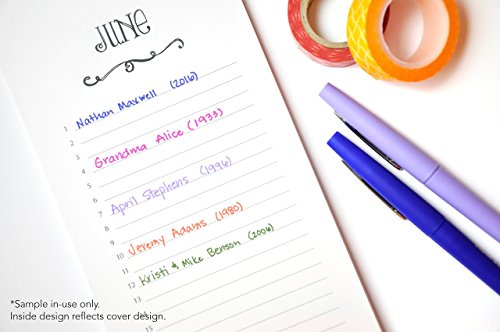 JUNE
1 Nathan Maxwell (2016)
2
3
4 Grandma Alice (1933)
5
6
7 April Stephens (1996)
8
9
10 Jeremy Adams (1980)
11
12 Kristi & Mike Benson (2006)
13
*Sample in-use only.
Inside design reflects cover design.
15